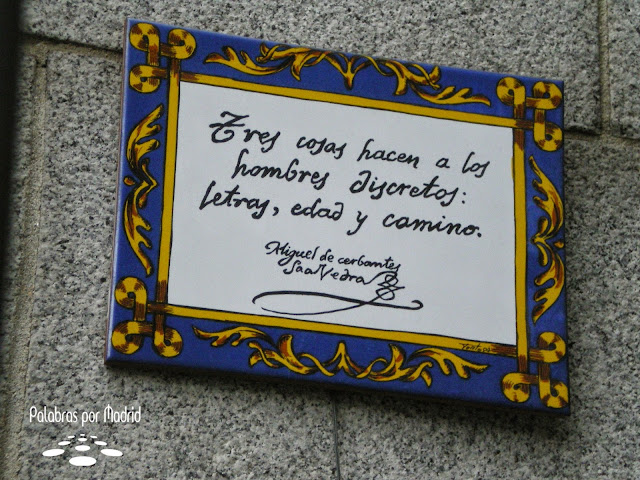 Tres cosas hacen a los
hombres discretos:
letras, edad y camino.
Miguel de cerbantes
SaaVedra
Palabras por Madrid